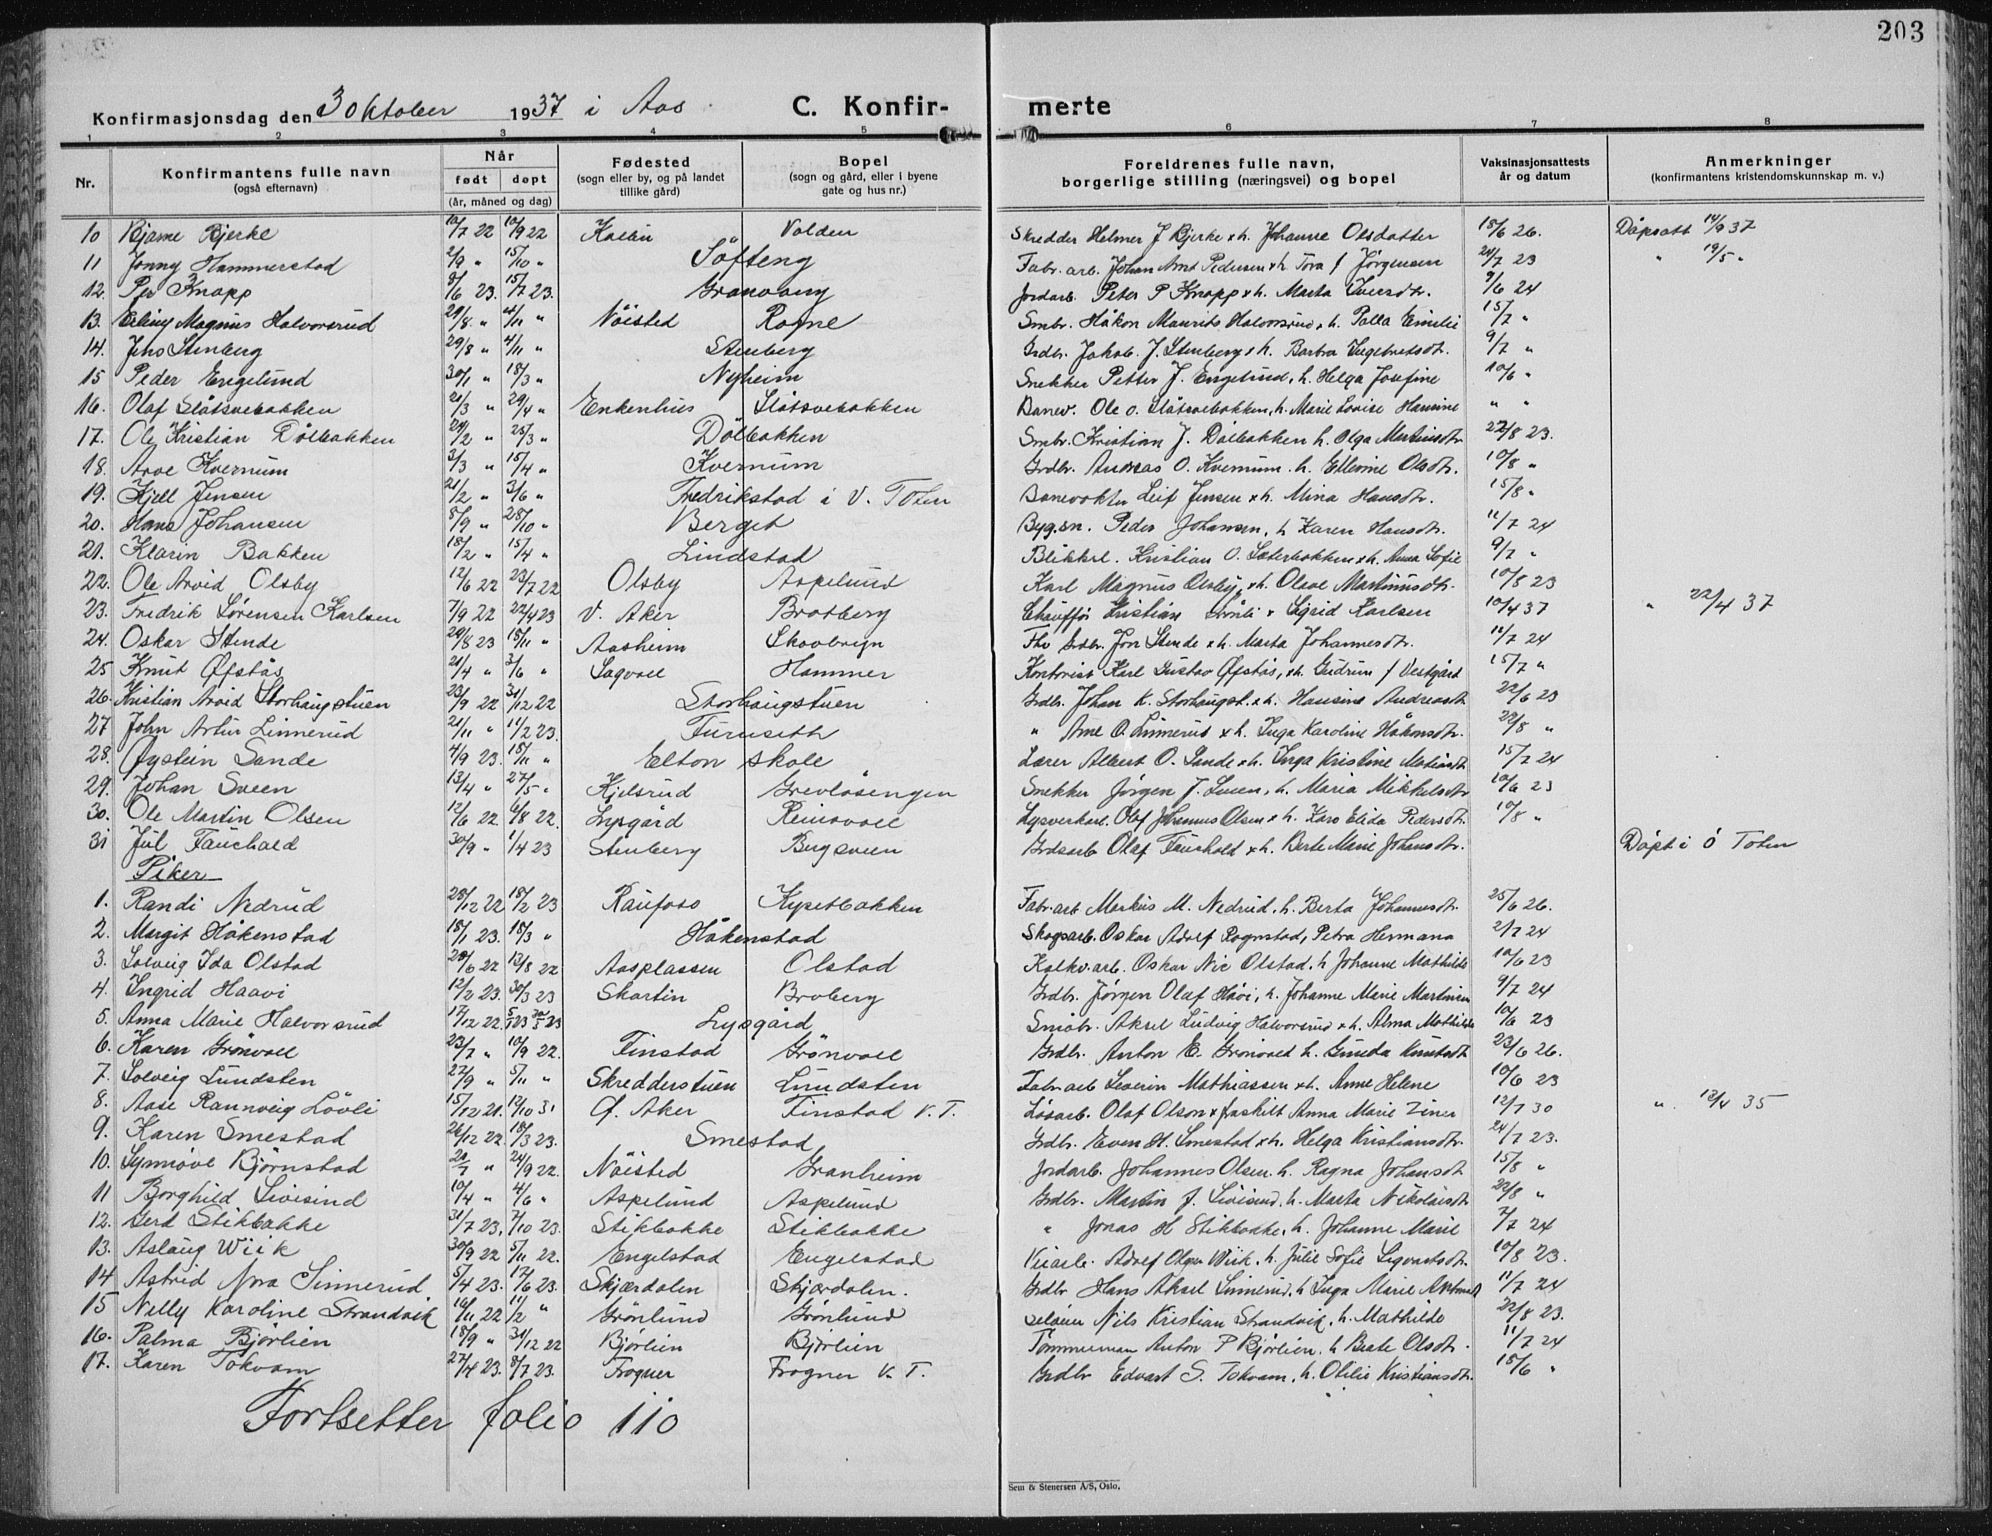 203
Konfirmasjonsdag den 3 oktober 1937 i Aas C. Konfirmerte
1 2 3 4 5 6 7 8
Nr. Konfirmantens fulle navn (også efternavn) Når født døpt (år, måned og dag) Fødested (sogn eller by, og på landet tillike gård) Bopel (sogn og gård, eller i byene gate og hus nr.) Foreldrenes fulle navn, borgerlige stilling (næringsvei) og bopel Vaksinasjonsattests år og datum Anmerkninger (konfirmantens kristendomskunnskap m. v.)
10 Bjarne Bjerke 10/7 22 10/9 22 Kolbu Volden Skredder Helmer J Bjerke x h. Johanne Olsdatter 15/6 26. Dåpsatt 14/9 37
11 Jonny Hammerstad 2/9 " 15/10 " Söfteng Fabr. arb. Johan Arnt Pedersen x h Tora f Jörgensen 24/7 23 " 19/5 "
12. Per Knapp 9/6 23. 15/7 23. Granvang Jordarb. Peter P Knapp x h. Marta Iversdtr. 9/6 24
13. Erling Magnus Halvorsrud 29/8 " 4/11 " Nöisted Rogne Smbr. Håkon Maurits Halvorsrud x h. Palla Emilie 15/7 "
14. Jens Stenberg 29/8 " 4/11 " Stenberg Grdbr. Jakob. J. Stenberg x h. Barbra Ingebretsdtr. 9/7 "
15 Peder Engelund 30/1 " 18/3 " Nyheim Snekker Petter J. Engelund, h. Helga Josefine 10/6 "
16. Olaf Slåtsvebakken 21/3 " 29/4 " Enkenhus Slåtsvebakken Banev. Ole O. Slåtsvebakken, h. Marie Lovise Hansine " "
17. Ole Kristian Dölbakken 24/2 " 25/3 " Dölbakken Smbr. Kristian J. Dölbakken h. Olga Martinsdtr 22/8 23.
18. Arve Kvernum 3/3 " 15/4 " Kvernum Grdbr. Andreas O. Kvernum. h. Ellevine Olsdtr. 10/8 "
19. Kjell Jensen 21/2 " 3/6 " Fredrikstad i V. Toten Banevokter Leif Jensen x h. Mina Hansdtr. 15/8 "
20. Hans Johansen 5/9 " 28/10 " Berget Byg.sn. Peder Johansen, h Karen Hansdtr. 11/7 24
21. Klarin Bakken 18/2 " 15/4 " Lindstad Blikksl. Kristian O. Sæterbakken x h. Anna Sofie 9/7 "
22. Ole Arvid Olsby 12/6 22 23/7 22 Olsby Aspelund Karl Magnus Olsby, x h. Oleve Martinusdtr. 10/8 23
23. Fredrik Sørensen Karlsen 7/9 22 22/4 23 V. Aker Brotberg Chauffør Kristian x Sigrid Karlsen 10/4 37 " 22/4 37
24. Oskar Stende 20/8 23 18/11 " Aasheim Skovbryn Grdbr. Jon Stende x h. Marta Johannesdtr. 11/7 24
25 Knut Øfstås 21/4 " 3/6 " Sagvoll Hammer Kontorist Karl Gustav Øfstås, x h. Gudrun f Vestgård 15/7 "
26. Kristian Arvid Storhaugstuen 23/9 22 31/12 22 Storhaugstuen Grdbr. Johan K. Storhaugst. x h. Hansine Andreasdtr 22/6 23
27 John Artur Linnerud 21/11 " 11/2 23. Furuseth " Arne O. Linnerud x h. Inga Karoline Håkonsdtr. 22/8 "
28. Øystein Sande 4/9 23. 18/11 " Elton skole Lærer Albert O. Sande x h. Inga Kristine Matiasdtr 15/7 24
29. Johan Sveen 13/4 " 27/5 " Kjelsrud Grevlösengen Snekker Jørgen J. Sveen, h. Maria Mikkelsdtr 10/6 23
30. Ole Martin Olsen 12/6 22. 6/8 22. Lysgård Reinsvoll Lysverkarb. Olaf Johannes Olsen x h. Karo Elida Pedersdtr. 10/8 "
31 Jul Fauchald 30/9 " 1/4 23 Stenberg Bergsveen Grdsarb Olaf Fauchald x h. Berte Marie Johansdtr. Döpt i Ö Toten
Piker
1. Randi Nedrud 28/12 22 18/2 23 Raufoss Kysetbakken Fabr. arb. Markus M. Nedrud, h. Berta Johannesdtr. 25/6 26.
2. Margit Håkenstad 15/1 23. 18/3 " Håkenstad Skogsarb. Oskar Adolf Rognstad, Petra Hermana 2/7 24
3. Solveig Ida Olstad 20/6 22 13/8 22 Aasplassen Olstad Kalkv. arb. Oskar Nic Olstad. h Johanne Mathilde 10/6 23
4. Ingrid Haavi 12/2 23. 30/3 23 Skartin Broberg Grdbr. Jörgen Olaf Håvi, h. Johanne Marie Martinsen 9/7 24
5. Anna Marie Halvorsrud 17/12 22. Lysgård Småbr. Aksel Ludvig Halvorsrud x h. Alma Mathilde 10/6 23
6. Karen Grönvoll 23/7 " 10/9 22. Finstad Grönvoll Grdbr. Anton E. Grönvold h. Gunda Knutsdtr 23/6 26.
7. Solveig Lundsten 27/9 " 5/11 " Skredderstuen Lundsten Fabr. arb Severin Mathiassen x h. Anne Helene 10/6 23
8. Aase Rannveig Lövli 15/12 21. 12/10 31 Ø. Aker Finstad V. T. Lösarb. Olaf Olson x fraskilt Anna Marie Ziner 12/7 30 " 12/4 35
9. Karen Smestad 26/12 22. 18/3 23. Smestad Grdbr. Even H. Smestad x h. Helga Kristiansdtr. 24/7 23.
10. Synnöve Björnstad 20/7 " 24/9 22. Nöisted Granheim Jordarb. Johannes Olsen. h. Ragna Johansdtr 15/8 "
11 Borghild Sivisind 10/4 " 4/6 " Aspelund Aspelund Grdbr. Martin J. Sivisind. h. Marta Nikolaisdtr 22/8 "
12. Gerd Stikbakke 31/7 23. 7/10 23. Stikbakke Stikbakke " Jonas H Stikbakke, h. Johanne Marie 2/7 24
13. Aslaug Wiik 30/9 22 5/11 22. Engelstad Engelstad Veiarb. Adolf Olger Wiik, h. Julie Sofie Sigvartsdtr. 10/8 23.
14 Astrid Nora Sinnerud. 5/4 23. 17/6 23. Skjærdalen Skjærdalen. Grdbr Hans Aksel Sinnerud, h Inga Marie 11/7 24
15 Nelly Karoline Strandvik 16/11 22 11/2 " Grönlund Grönlund Nils Kristian Strandvik, h. Mathilde 22/8 23.
16. Palma Bjørlien 18/9 " 31/12 22 Bjørlien Bjørlien Tömmerman Anton P Bjørlien, h Beate Olsdtr. 11/7 24
17. Karen Tokvam 27/4 23. 8/7 23. Frogner Frogner V. T. Grdbr Edvart S. Tokvam, h. Otilie Kristiansdtr. 15/6 "
Fortsetter folio 110
Sem & Stenersen A/S, Oslo.